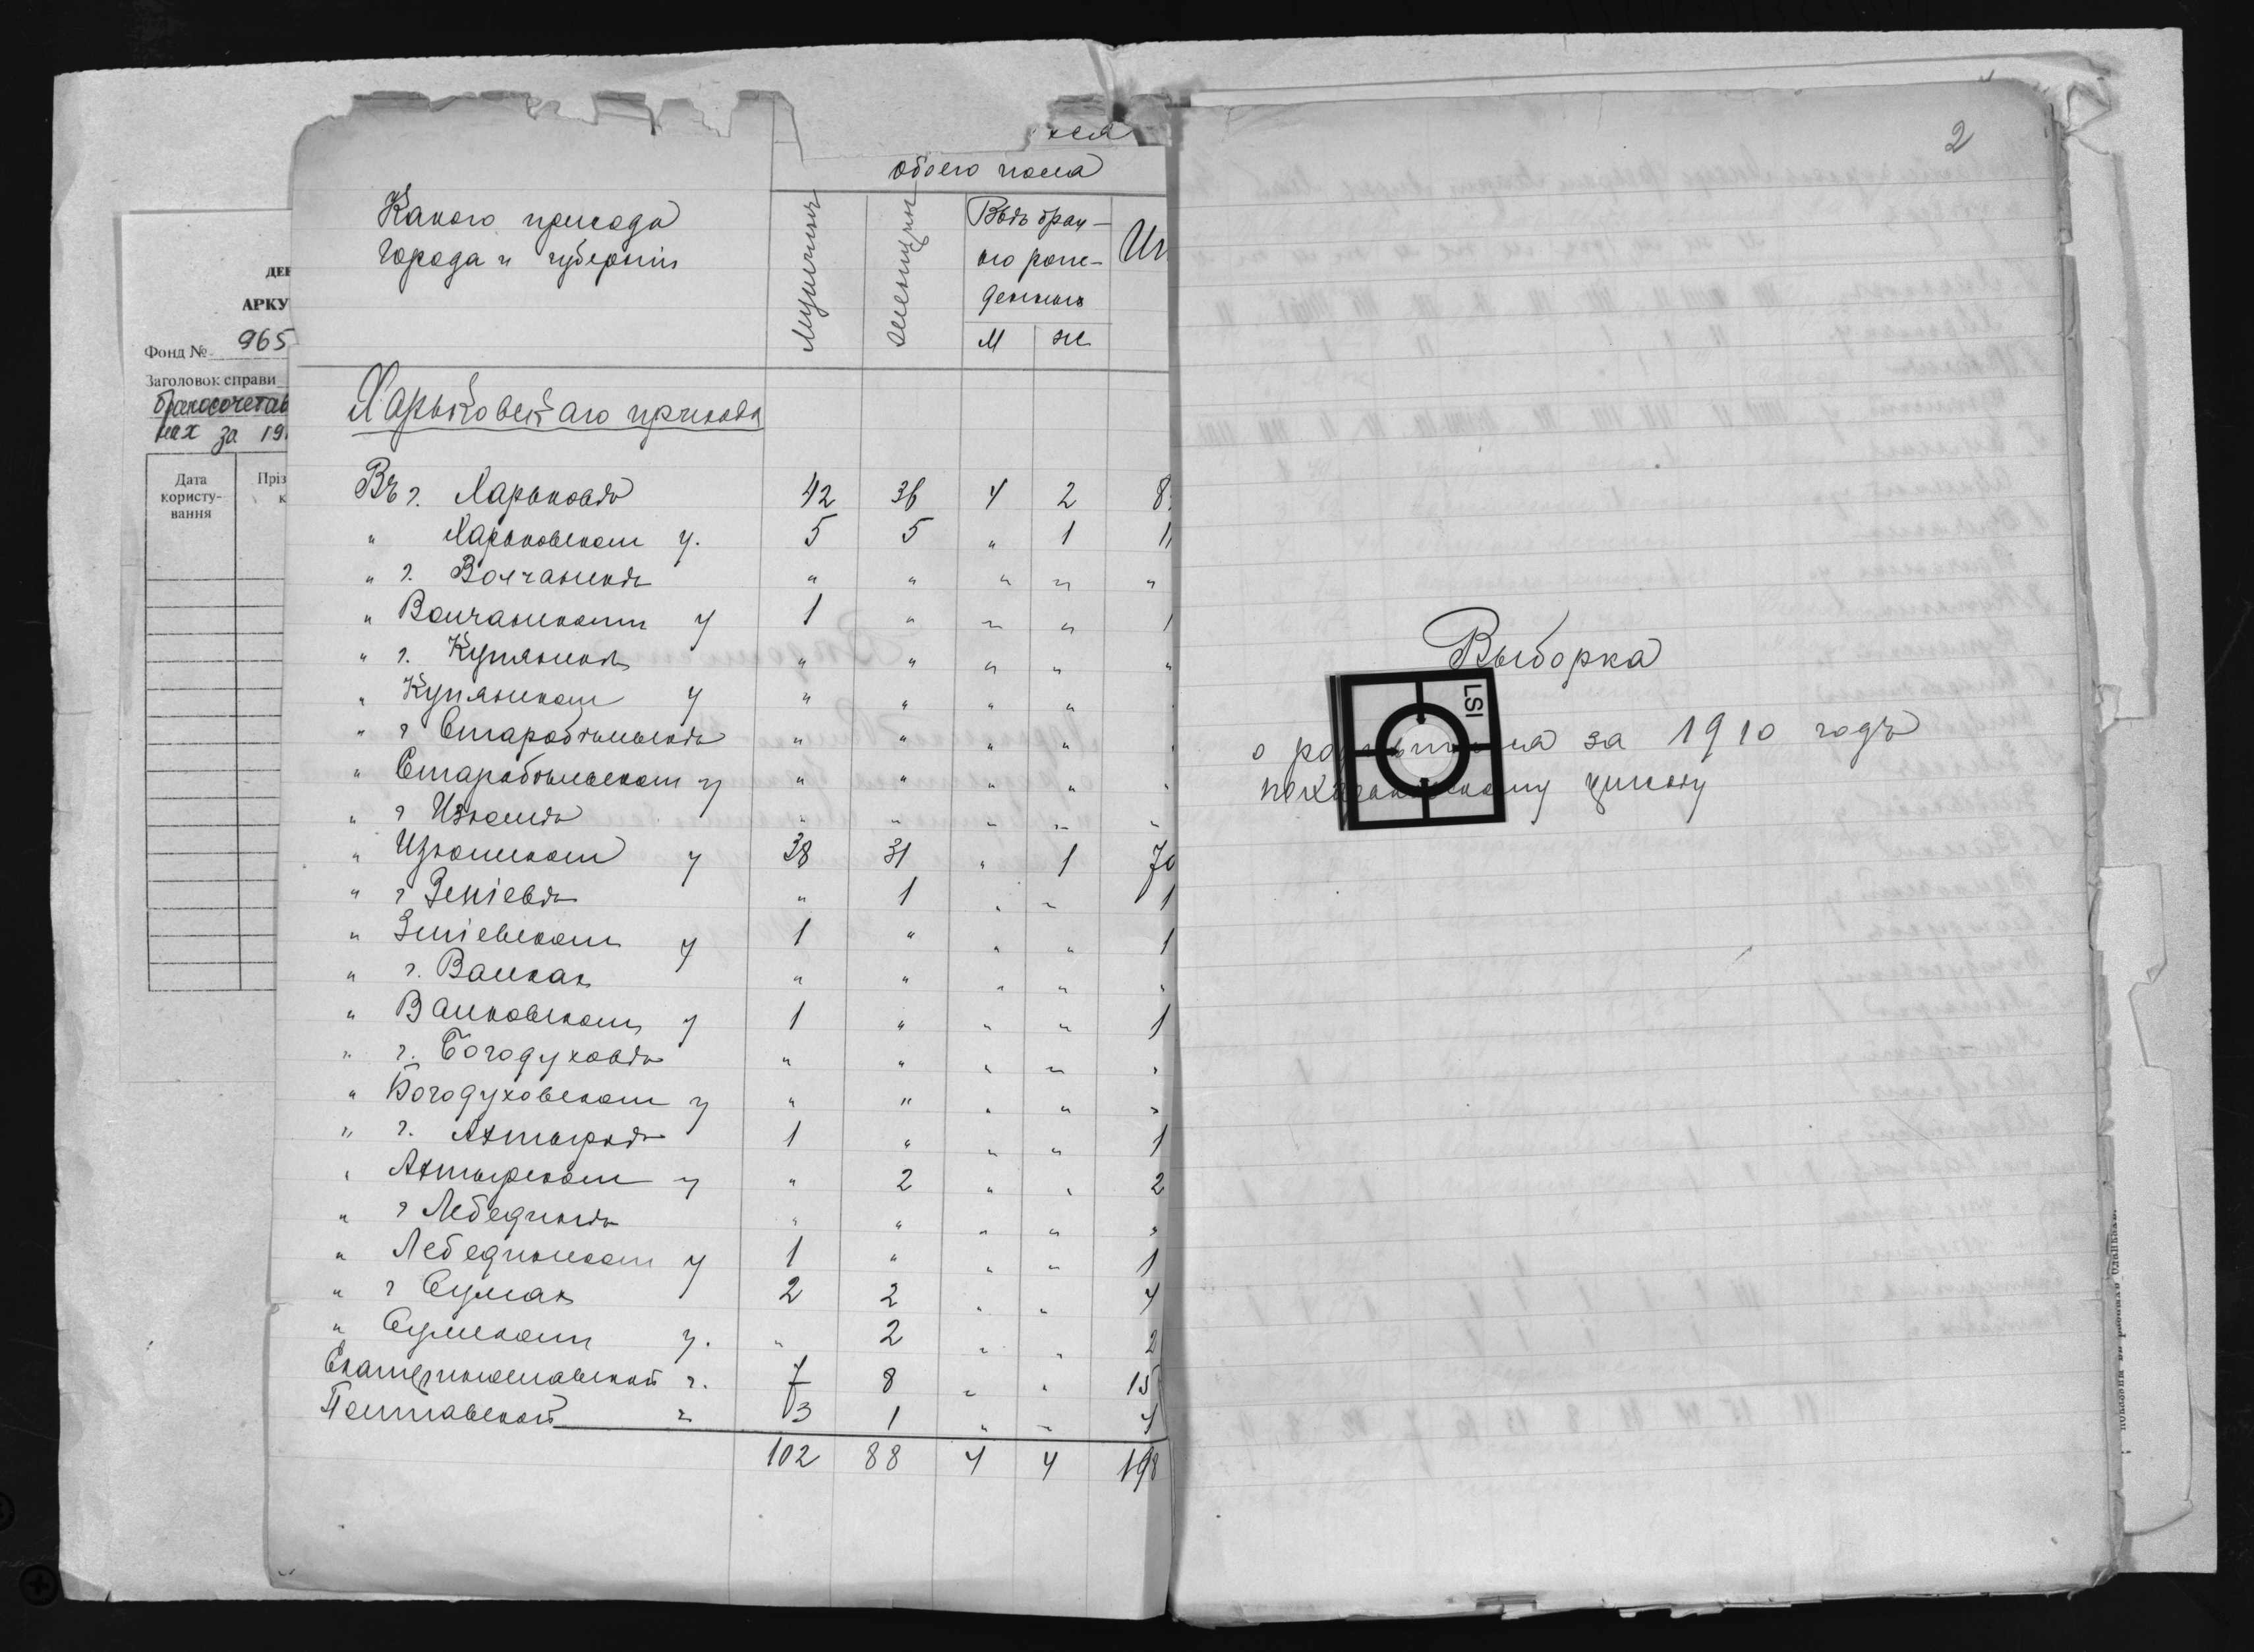 ДЕР
АРКУ
Фонд № 965
Заголовок справи
бракосочетав
нах за 19
Дата користу-вання
Пріз
к
обоего пола
Какого прихода
Города и губернiи
Мужчинъ
Женщинъ
Внѣ брач-
но рож-
денныхъ
М ж
Ит
Харьковскаго прихода
Въ г. Харьковѣ 42 36 4 2 8
" Харьковскомъ у. 5 5 " 1 11
" г. Волчанскѣ " " " " "
" Волчанскомъ у 1 " " " 1
" г. Купянскѣ " " " " "
" Купянскомъ у " " " "
" г Старобѣльскѣ " " " "
" Старобѣльскомъ у " " " " "
" г Изюмѣ " " " " "
" Изюмскомъ у 38 31 " 1 70
" г Зміевѣ " 1 " " 1
" Зміевскомъ у 1 " " " 1
" г. Валкахъ " " " " "
" Валковскомъ у 1 " " " 1
" г. Богодуховѣ " " " " "
" Богодуховскомъ у " " " " "
" г. Ахтыркѣ 1 " " " 1
" Ахтырскомъ у " 2 " " 2
" г Лебединѣ " " " " "
" Лебединскомъ у 1 " " " 1
" г Сумахъ 2 2 " " 4
" Сумскомъ у. " 2 " " 2
Екатеринославской г. 7 8 " " 15
Полтавской г 3 1 " " 4
102 88 4 4 198
2
Выборка
LSI
о за 1910 годъ